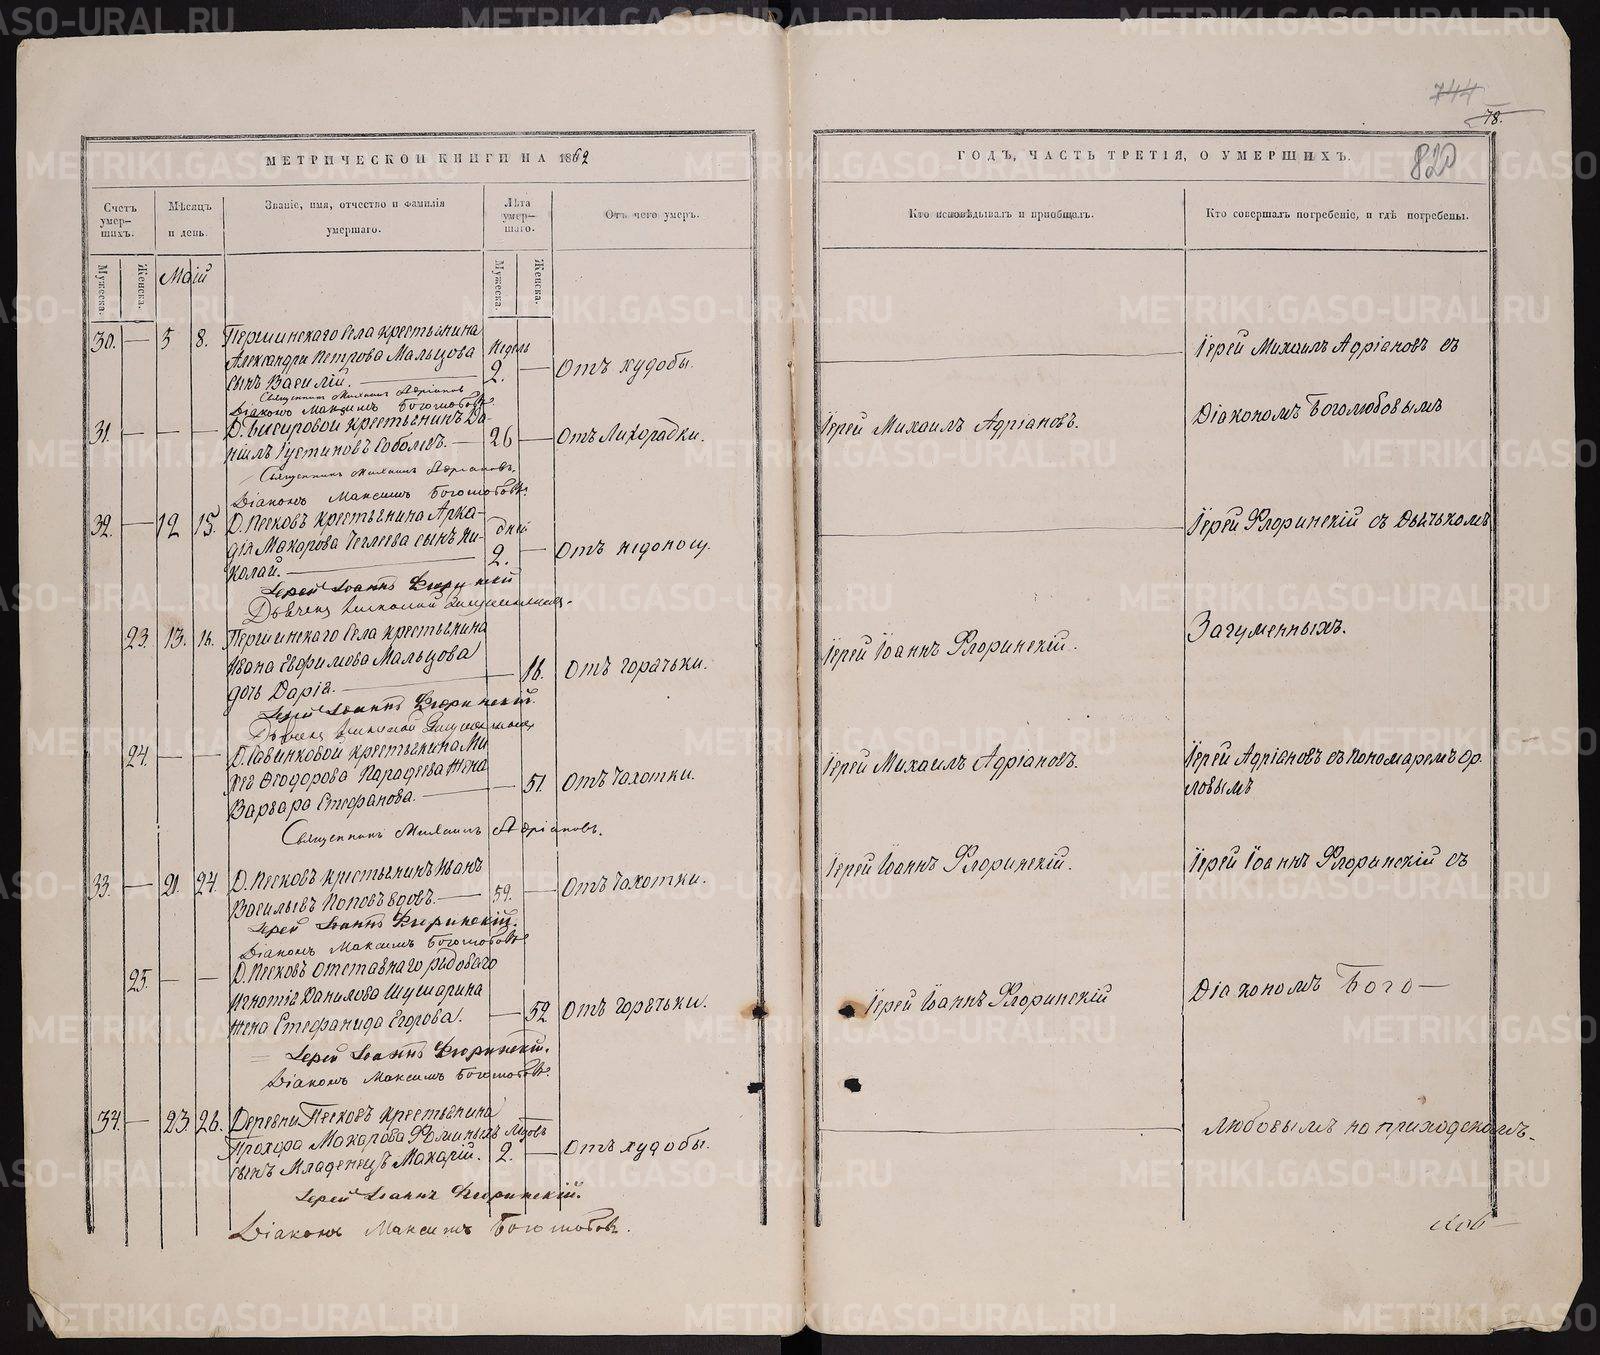 744
78.
820
МЕТРИЧЕСКОЙ КНИГИ НА 1862
ГОДЪ, ЧАСТЬ ТРЕТІЯ, О УМЕРШИХЪ.
Счетъ умер-шихъ.
Мѣсяцъ и день.
Званіе, имя, отчество и фамилія умершаго.
Лѣта умер-шаго.
Отъ чего умеръ.
Кто исповѣдывалъ и пріобщалъ.
Кто совершалъ погребеніе, и гдѣ погребены.
Мужеска.
Женска.
Маій
Мужеска.
Женска.
30. — 5 8. Першинскаго села крестьянина
Александра Петрова Мальцова
сынъ Василій.
Недель 2. — Отъ худобы.
Іерей Михаилъ Адріановъ съ
Священникъ Михаилъ Адріановъ
Діаконъ Максимъ Боголюбовъ
31. — — — крестьянинъ Да-
ніилъ Іустиновъ Соболевъ. — 26 — Отъ Лихорадки.
Іерей Михаилъ Адріановъ.
Діакономъ Боголюбовымъ
Священникъ Михаилъ Адріановъ.
Діаконъ Максимъ Боголюбовъ.
32. — 12 15. Д. Песковъ крестьянина Арка-
дія Макарова сынъ Ни-
колай.
дней 2. — Отъ недоносу.
Іерей Флоринскій съ Дьячкомъ
Іерей Іоаннъ Флоринскій
23. 13. 16. Першинскаго села крестьянина
Ивана Евфимова Мальцова
дочь Дарія. — 16. Отъ горячьки.
Іерей Іоаннъ Флоринскій.
Загуменныхъ.
Іерей Іоаннъ Флоринскій.
24. — — Д. крестьянина Ми
хея Ѳеодорова жена
Варвара Стефанова. — 51. Отъ чахотки.
Іерей Михаилъ Адріановъ.
Іерей Адріановъ съ пономаремъ Ор-
ловымъ
Священникъ Михаилъ Адріановъ.
33. — 21. 24. Д. Песковъ крестьянинъ Иванъ
Васильевъ Поповъ вдовъ. — 59. — Отъ чахотки.
Іерей Іоаннъ Флоринскій.
Іерей Іоаннъ Флоринскій съ
Іерей Іоаннъ Флоринскій.
Діаконъ Максимъ Боголюбовъ
25. — — Д. Песковъ отставнаго рядоваго
Игнатія Данилова Шушарина
жена Стефанида Егорова. — 52 Отъ горячьки.
Іерей Іоаннъ Флоринскій
Діакономъ Бого—
Іерей Іоаннъ Флоринскій.
Діаконъ Максимъ Боголюбовъ.
34. — 23 26. Деревни Песковъ крестьянина
Прохора Макарова Ѳоминыхъ
сынъ младенецъ Макарій. 2. — Отъ худобы.
любовымъ на приходскомъ
Іерей Іоаннъ Флоринскій.
Діаконъ Максимъ Боголюбовъ.
METRIKI.GASO-URAL.RU